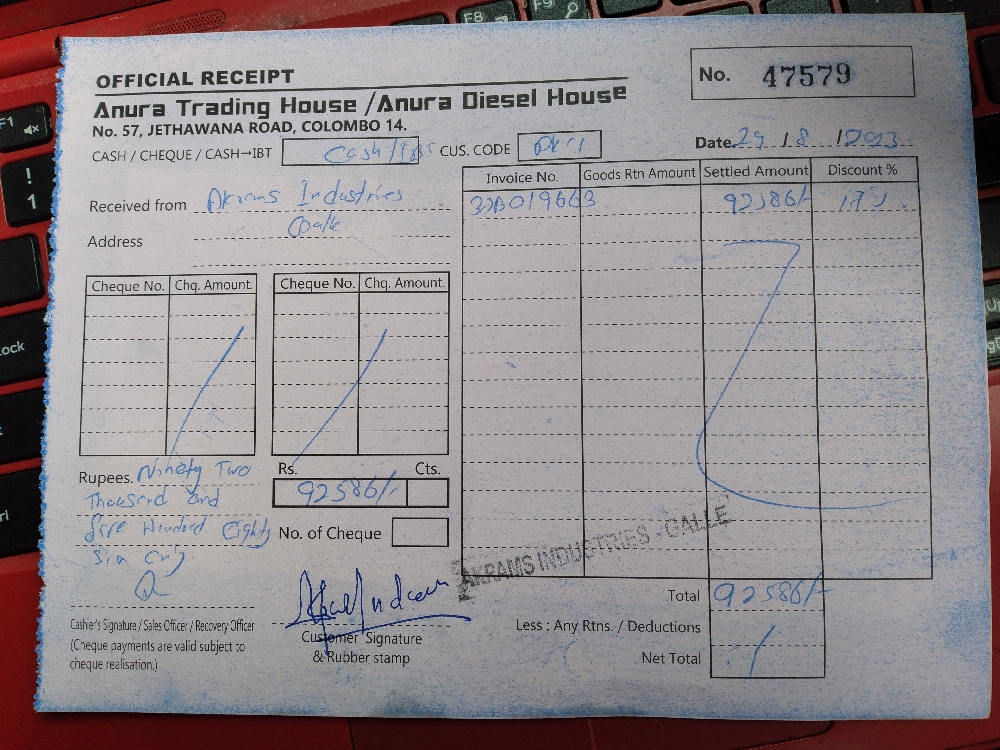 OFFICIAL RECEIPT
No. 47579
Anura Trading House /Anura Diesel House
No. 57, JETHAWANA ROAD, COLOMBO 14.
CASH / CHEQUE / CASH→IBT Cash/IBT CUS. CODE
Date. 29 / 8 / 2023
Invoice No. Goods Rtn Amount Settled Amount Discount %
Received from Akrams Industries
92586/- 17%
Address Galle
Cheque No. Chq. Amount. Cheque No. Chq. Amount.
Rupees. Ninety Two
Thousand and
five Hundred Eighty
Six only
Rs. Cts.
92586/-
No. of Cheque
AKRAMS INDUSTRIES - GALLE
Total 92586/-
Less : Any Rtns. / Deductions
Net Total
Cashier's Signature / Sales Officer / Recovery Officer
(Cheque payments are valid subject to
cheque realisation.)
Customer Signature
& Rubber stamp
F1
!
1
F8
F9